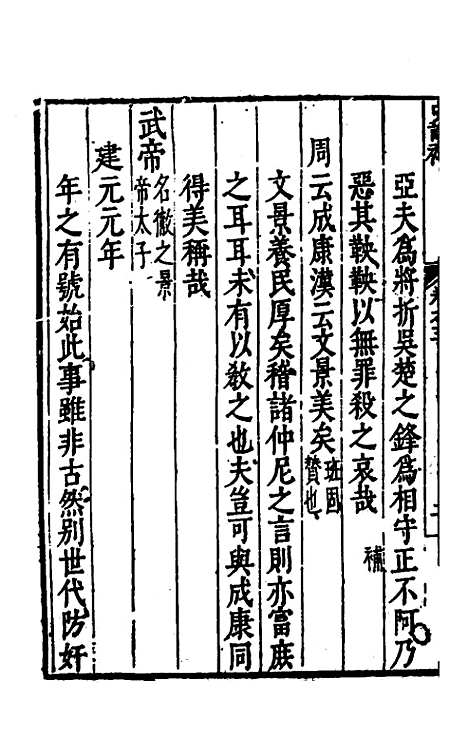 亞夫爲將折吳楚之鋒爲相守正不阿乃
惡其鞅鞅以無罪殺之哀哉
補
周云成康漢云文景美矣班固贊也
文景養民厚矣稽諸仲尼之言則亦富庶
之耳耳未有以敎之也夫豈可與成康同
得美稱哉
武帝名徹之景帝太子
建元元年
年之有號始此事雖非古然別世代防奸